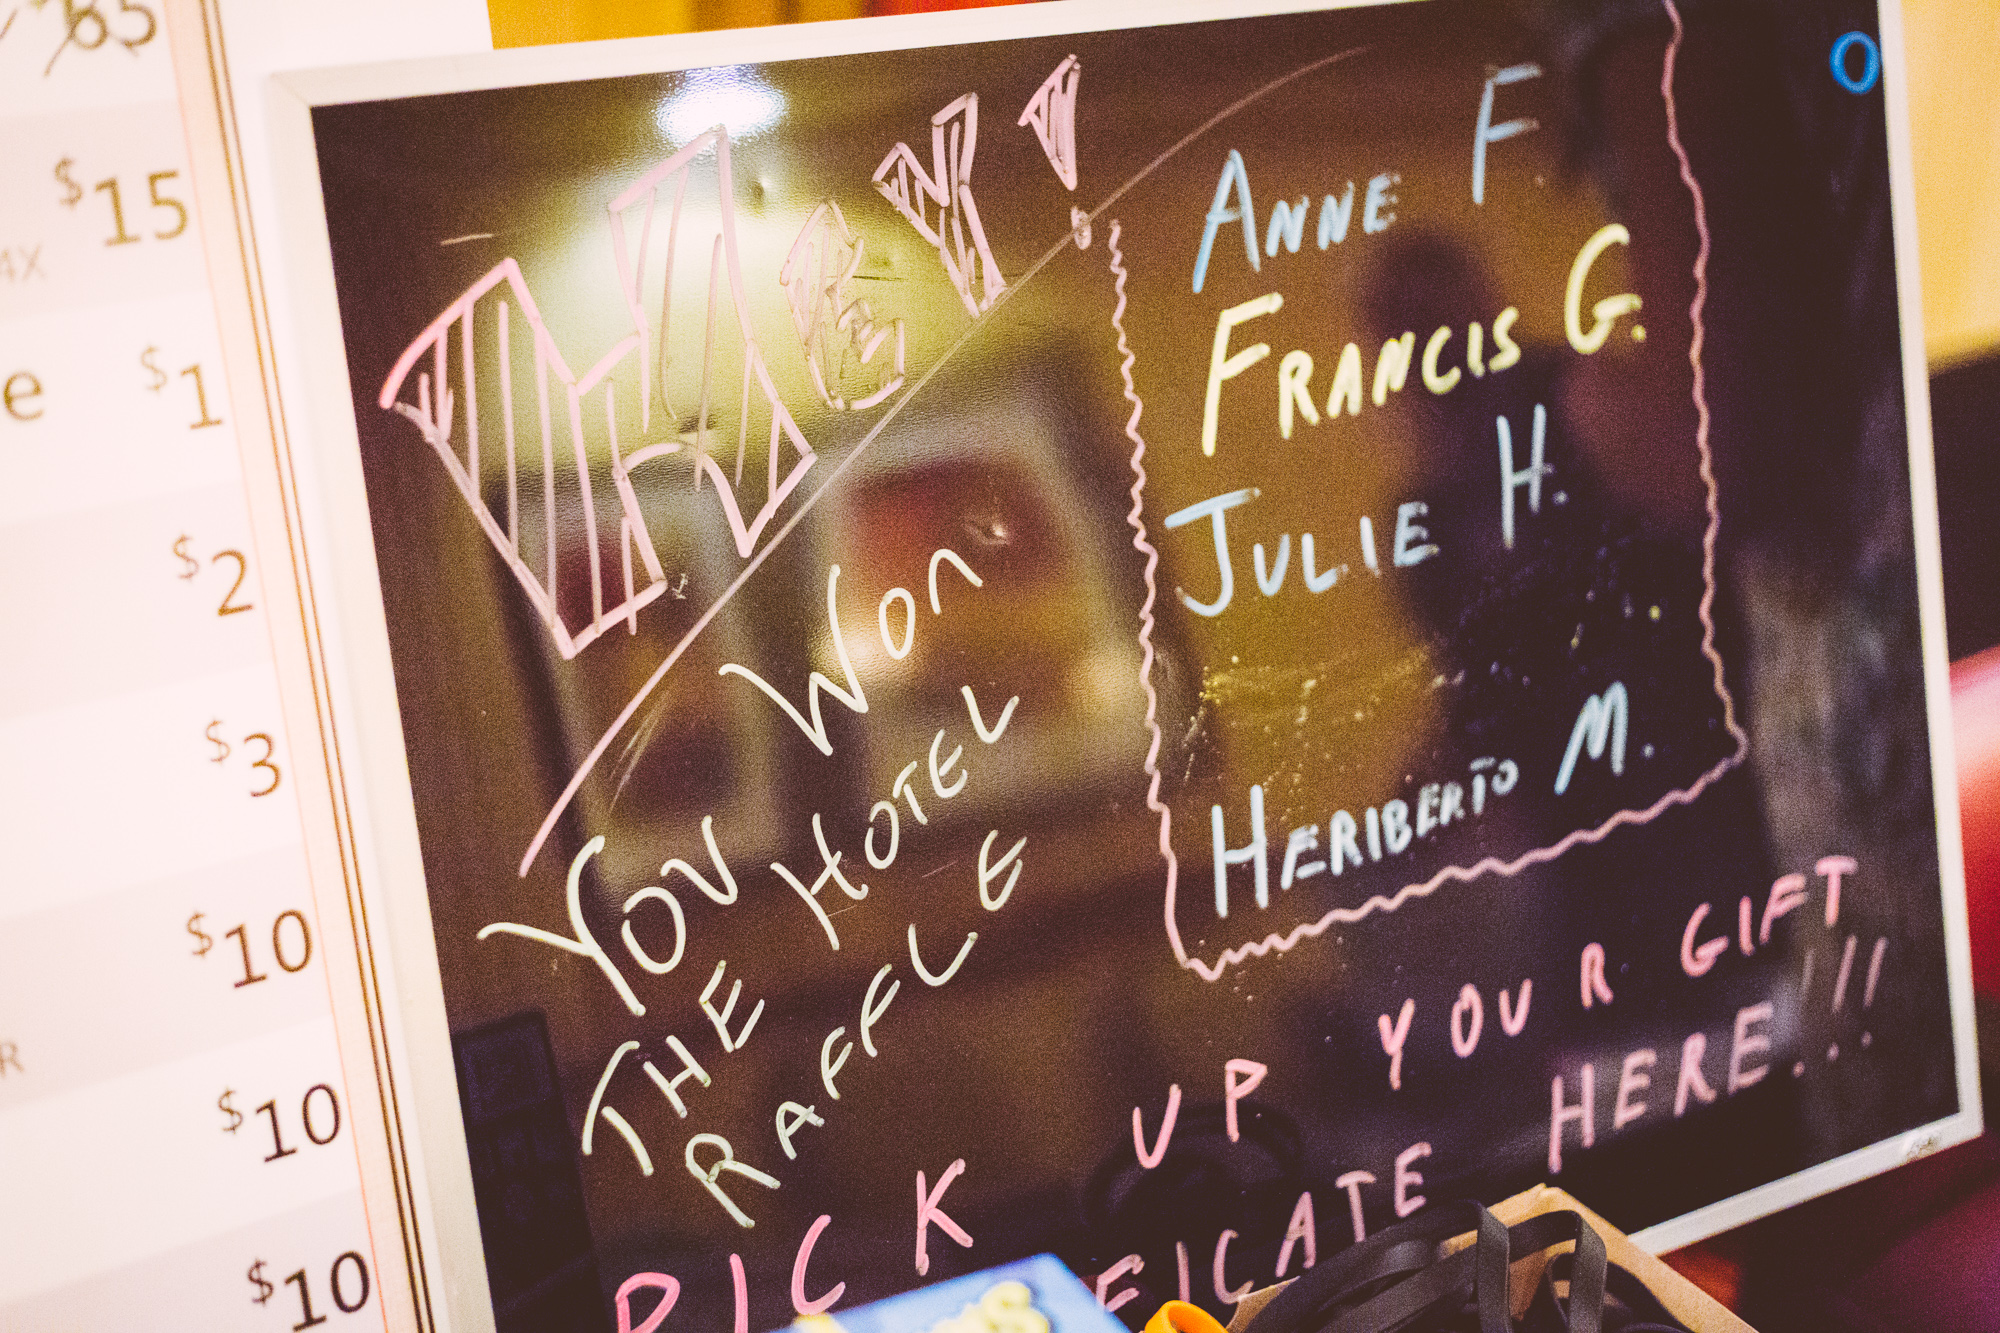 $15
4X
e $1
$2
$3
$10
R
$10
$10
HEY!
YOU WON
THE HOTEL
RAFFLE
ANNE F
FRANCIS G.
JULIE H.
HERIBERTO M.
PICK UP YOUR GIFT
FICATE HERE!!!